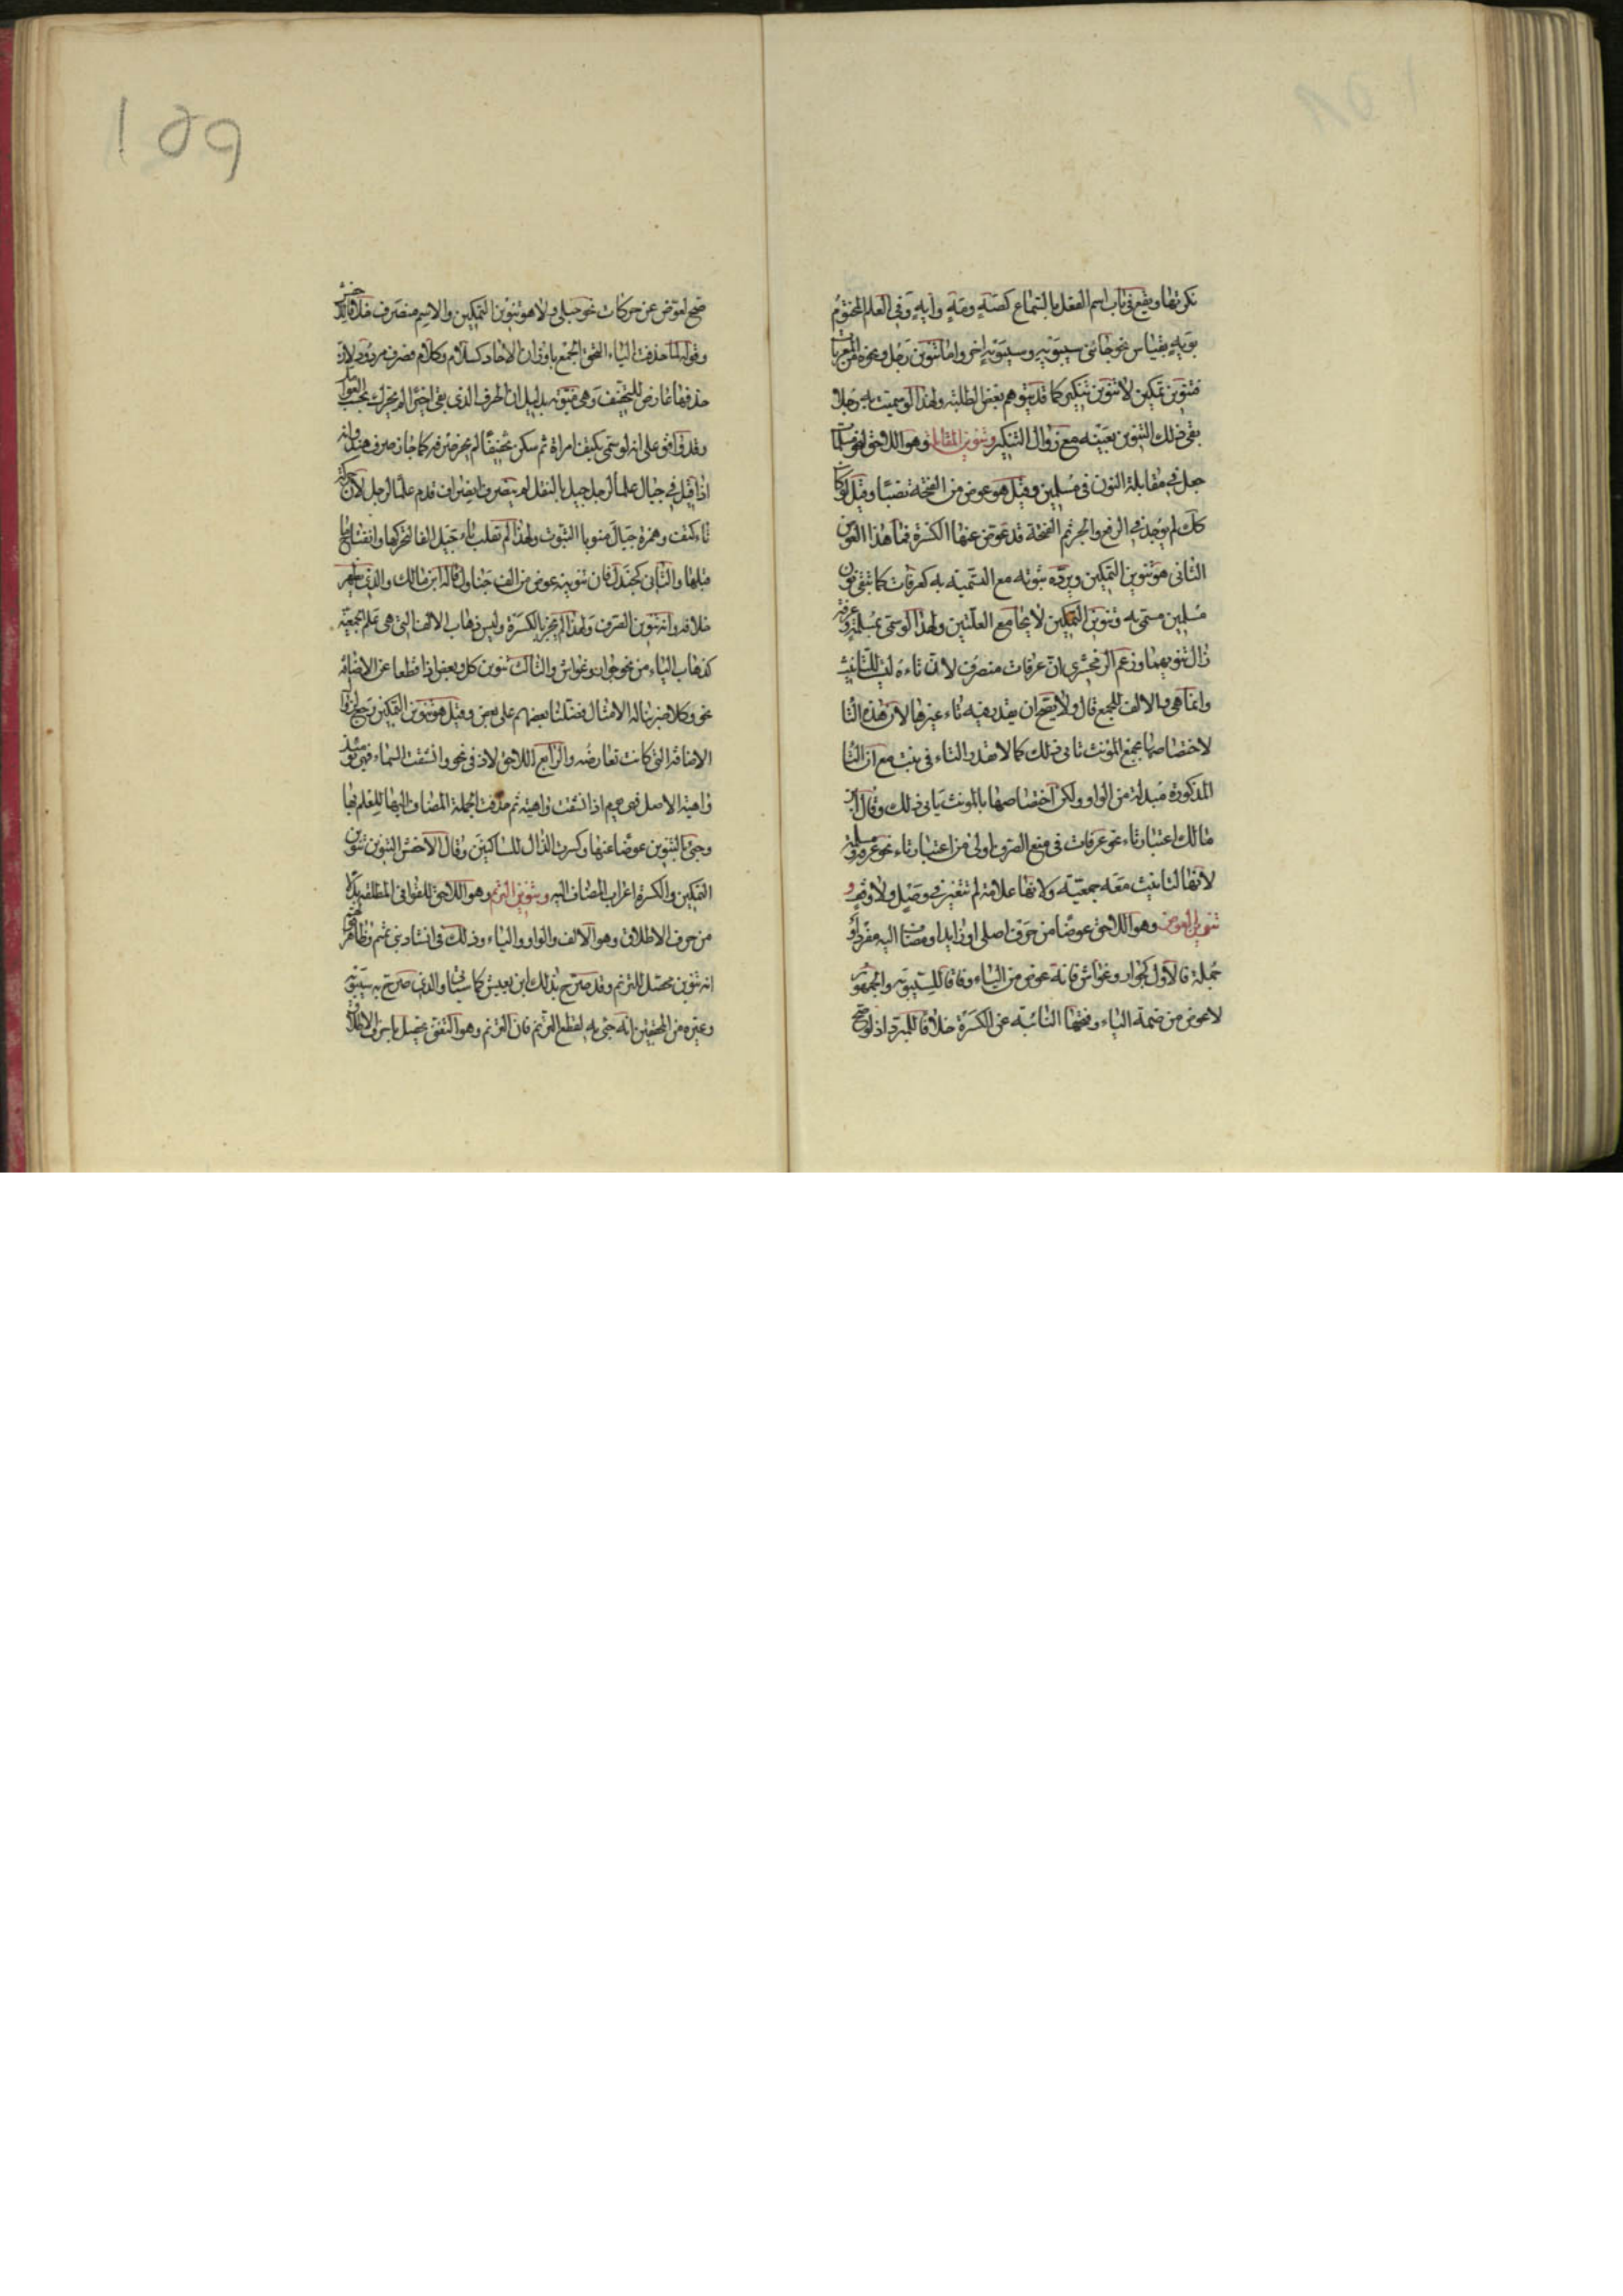 نكرتها ويقع في باب اسم الفعل بالسماع كصَهٍ ومَهٍ وايهٍ وفي العلم المختوم
بويه بقياس نحو جاءني سيبويه وسيبويهٍ اخر واما تنوين رجل ونحوه من المعربات
فتنوين تمكين لا تنوين تنكير كما قد يتوهم بعض الطلبة ولهذا لو سميت به رجلا
بقي ذلك التنوين بعينه مع زوال التنكير وتنوين المقابلة وهو اللاحق لنحو مسلمات
جعل في مقابلة النون في مسلمين وقيل هو عوض من الفتحة نصبا وقيل لو كان
كذلك لم يوجد في الرفع والجر ثم الفتحة قد عوض عنها الكسرة فما هذا العوض
الثاني هو تنوين التمكين ويرده ثبوته مع التسمية به كعرفات كما تبقى نون
مسلمين مسمى به وتنوين التمكين لا يجامع العلتين ولهذا لو سمي بمسلمة وعرفة
زال تنوينهما وزعم الزمخشري ان عرفات منصرف لان تاءه ليست للتأنيث
وانما هي والالف للجمع قال ولا يصح ان يقدر فيه تاء غيرها لان هذه التا
لاختصاصها بجمع المؤنث تابى ذلك كما لا تقدر التاء في بنت مع ان التا
المذكورة مبدلة من الواو ولكن اختصاصها بالمونث يابى ذلك وقال ابن
مالك اعتبار تاء نحو عرفات في منع الصرف اولى من اعتبار تاء نحو عرفة ومسلمة
لانها لتانيث معه جمعية ولانها علامة لم تتغير في وصل ولا وقف و
تنوين العوض وهو اللاحق عوضا من حرف اصلي او زايد او مضاف اليه مفرد او
جملة فالاول كجوار وغواش فانه عوض من الياء وفاقا لسيبويه والجمهور
لا عوض من ضمة الياء وفتحها النائبة عن الكسرة خلافا للمبرد اذ لو صح
صح لعوض عن حركات نحو حبلى ولا هو تنوين التمكين والاسم منصرف خلافا للاخفش
وقوله لما حذفت الياء التحق الجمع باوزان الاحاد كسلام وكلام فصرف مردود لان
حذفها عارض للتخفيف وهي منوية بدليل ان الحرف الذي بقي اخيرا لم يحرك بحسب العوامل
وقد وافق على انه لو سمي بكتف امراة ثم سكن تخفيفا لم يجز صرفه كما جاز صرف هند وانه
اذا قيل في جيال علما لرجل جيل بالنقل لم ينصرف انصراف قدم علما لرجل لان حركة
تاء كتف وهمزة جيال منويا الثبوت ولهذا لم تقلب ياء جيل الفا لتحركها وانفتاح ما
قبلها والثاني كجندل فان تنوينه عوض من الف جنادل قاله ابن مالك والذي يظهر
خلافه وانه تنوين الصرف ولهذا لم يجر بالكسرة وليس ذهاب الالف التي هي علم الجمعية
كذهاب الياء من نحو جوار وغواش والثالث تنوين كل وبعض اذا قطعا عن الاضافة
نحو وكلا ضربنا له الامثال فضلنا بعضهم على بعض وقيل هو تنوين التمكين رجع لزوال
الاضافة التي كانت تعارضه والرابع اللاحق لاذ في نحو وانشقت السماء فهي يومئذ
واهية الاصل فهي يوم اذا انشقت واهية ثم حذفت الجملة المضاف اليها للعلم بها
وجيء بالتنوين عوضا عنها وكسرت الذال للساكنين وقال الاخفش التنوين تنوين
التمكين والكسرة اعراب المضاف اليه وتنوين الترنم وهو اللاحق للقوافي المطلقة بدلا
من حرف الاطلاق وهو الالف والواو والياء وذلك في انشاد بني تميم وظاهر قولهم
انه تنوين محصل للترنم وقد صرح بذلك ابن يعيش كما سياتي والذي صرح به سيبويه
وغيره من المحققين انه جيء به لقطع الترنم فان الترنم وهو التغني يحصل باحرف الاطلاق